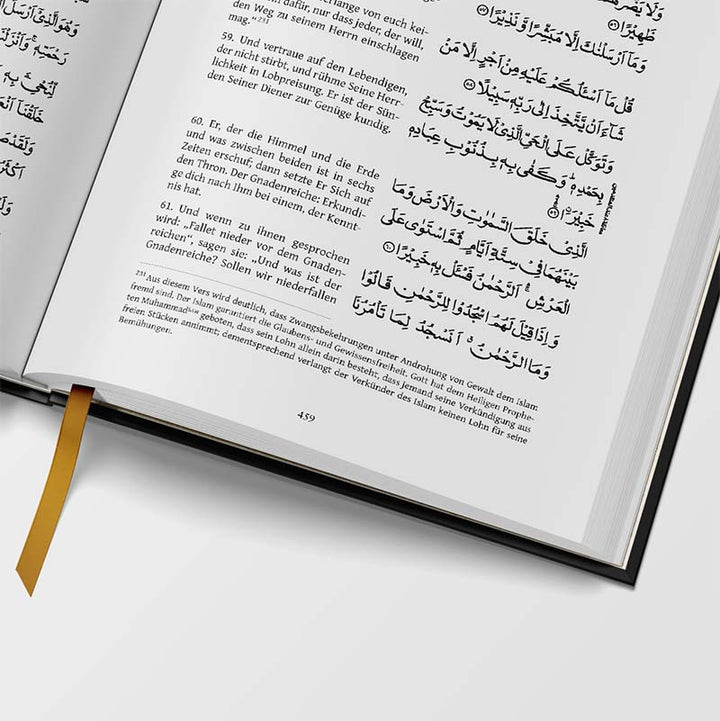 verlange von euch kei-
dafür, nur dass jeder, der will,
den Weg zu seinem Herrn einschlagen
mag."²³¹
59. Und vertraue auf den Lebendigen,
der nicht stirbt, und rühme Seine Herr-
lichkeit in Lobpreisung. Er ist der Sün-
den Seiner Diener zur Genüge kundig,
60. Er, der die Himmel und die Erde
und was zwischen beiden ist in sechs
Zeiten erschuf; dann setzte Er Sich auf
den Thron. Der Gnadenreiche: Erkundi-
ge dich nach Ihm bei einem, der Kennt-
nis hat.
61. Und wenn zu ihnen gesprochen
wird: „Fallet nieder vor dem Gnaden-
reichen", sagen sie: „Und was ist der
Gnadenreiche? Sollen wir niederfallen
ظَهِيْرًا ۵۶
وَمَاۤ اَرْسَلْنٰكَ اِلَّا مُبَشِّرًا وَّنَذِيْرًا ۵۷
قُلْ مَاۤ اَسْـَٔلُكُمْ عَلَيْهِ مِنْ اَجْرٍ اِلَّا مَنْ
شَآءَ اَنْ يَّتَّخِذَ اِلٰى رَبِّهٖ سَبِيْلًا ۵۸
وَتَوَكَّلْ عَلَى الْحَيِّ الَّذِيْ لَا يَمُوْتُ وَسَبِّحْ
بِحَمْدِهٖ ؕ وَكَفٰى بِهٖ بِذُنُوْبِ عِبَادِهٖ
خَبِيْرًا ۵۹
الَّذِيْ خَلَقَ السَّمٰوٰتِ وَالْاَرْضَ وَمَا
بَيْنَهُمَا فِيْ سِتَّةِ اَيَّامٍ ثُمَّ اسْتَوٰى عَلَى
الْعَرْشِ ۛۚ اَلرَّحْمٰنُ فَسْـَٔلْ بِهٖ خَبِيْرًا ۶۰
وَاِذَا قِيْلَ لَهُمُ اسْجُدُوْا لِلرَّحْمٰنِ قَالُوْا
وَمَا الرَّحْمٰنُ ۗ اَنَسْجُدُ لِمَا تَاْمُرُنَا
²³¹ Aus diesem Vers wird deutlich, dass Zwangsbekehrungen unter Androhung von Gewalt dem Islam
fremd sind. Der Islam garantiert die Glaubens- und Gewissensfreiheit. Gott hat dem Heiligen Prophe-
ten Muhammad geboten, dass sein Lohn allein darin besteht, dass jemand seine Verkündigung aus
freien Stücken annimmt; dementsprechend verlangt der Verkünder des Islam keinen Lohn für seine
Bemühungen.
459